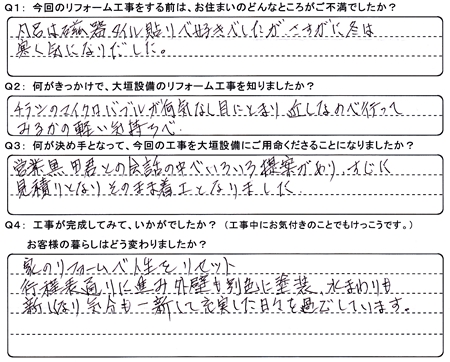 Q1: 今回のリフォーム工事をする前は、お住まいのどんなところがご不満でしたか?
内呂は磁器タイル貼りで好きでしたがさすがに冬は
寒く気になりだした。
Q2: 何がきっかけで、大垣設備のリフォーム工事を知りましたか?
チラシのマイクロバブルが何気なし目にとまり 近しなので行って
みるかの軽い気持ちで.
Q3: 何が決め手となって、今回の工事を大垣設備にご用命くださることになりましたか?
営業黒田君との会話の中でいろいろ提案があり すじに
見積りとなり そのまま着工となりました
Q4: 工事が完成してみて、いかがでしたか? (工事中にお気付きのことでもけっこうです。)
お客様の暮らしはどう変わりましたか?
家のリフォームで人生をリセット
行程表通りに進み 外壁も別色に塗装、水まわりも
新しくなり気分も一新して充実した日々を過ごしています。